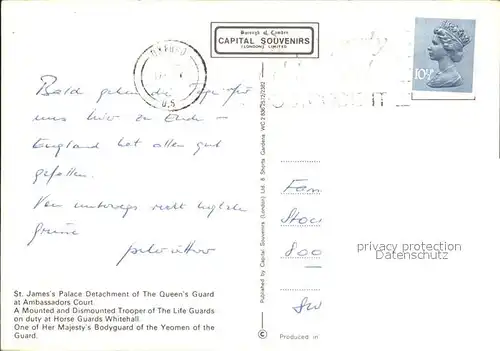 Borough of Camden
CAPITAL SOUVENIRS
(LONDON) LIMITED
OXFORD
10½P
Bald gehen die Tage für
uns hier zu Ende –
England hat allen gut
gefallen.
Von unterwegs recht
Grüsse
Published by Capital Souvenirs (London) Ltd. 8 Shorts Gardens WC2 836 2572/2382
Fam
800
privacy protection
www.ansichtskarten-center.de
St. James's Palace Detachment of The Queen's Guard
at Ambassadors Court.
A Mounted and Dismounted Trooper of The Life Guards
on duty at Horse Guards Whitehall.
One of Her Majesty's Bodyguard of the Yeomen of the
Guard.
© Produced in